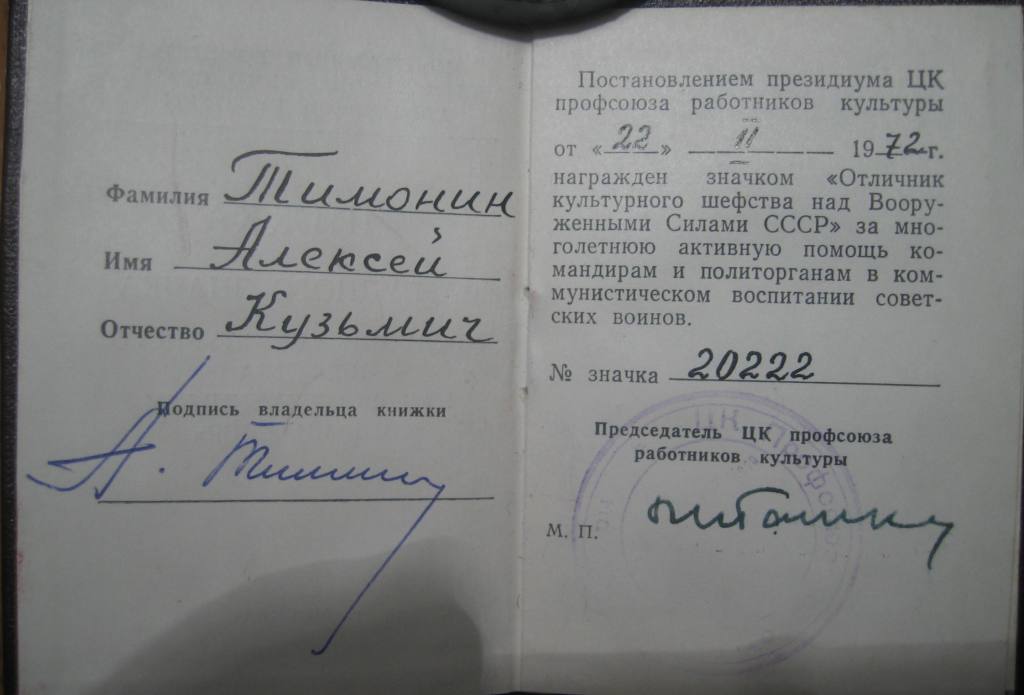 Фамилия Тимонин
Имя Алексей
Отчество Кузьмич
Подпись владельца книжки
А. Тимонин
Постановлением президиума ЦК
профсоюза работников культуры
от «22» II 1972 г.
награжден значком «Отличник
культурного шефства над Воору-
женными Силами СССР» за мно-
голетнюю активную помощь ко-
мандирам и политорганам в ком-
мунистическом воспитании совет-
ских воинов.
№ значка 20222
Председатель ЦК профсоюза
работников культуры
М. П.
ЦК Профсоюз